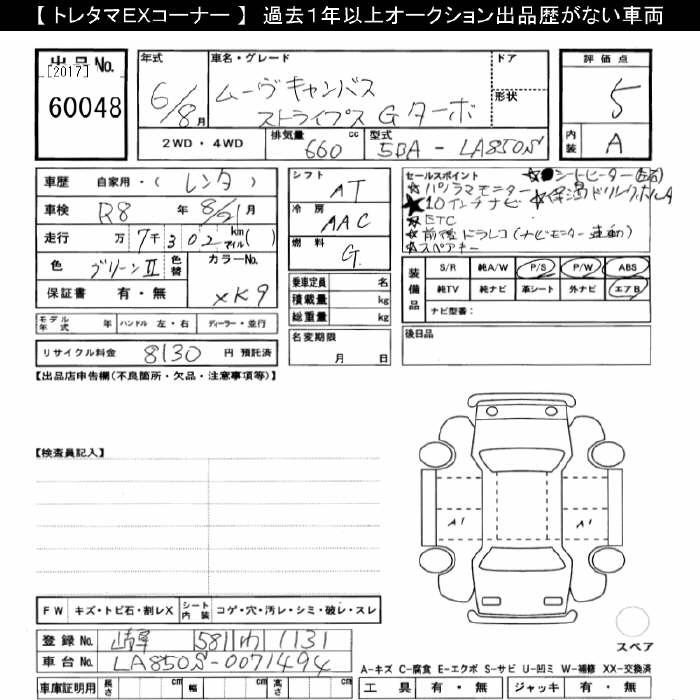 【トレタマEXコーナー】 過去1年以上オークション出品歴がない車両
出品No.
[2017]
60048
年式
6/8月
車名・グレード
ムーヴキャンバス
ストライプス Gターボ
ドア
形状
2WD・4WD
排気量 660 cc
型式 5BA-LA850S
評価点
5
内装
A
車歴 自家用・(レンタ)
車検 R8 年 8/21月
走行 万 7千302 km(マイル)
色 グリーンⅡ 色替 カラーNo. XK9
保証書 有・無
シフト
AT
冷房
AAC
燃料
G
乗車定員 名
積載量 kg
総重量 kg
名変期限
月 日
セールスポイント
★シートヒーター
★パノラマモニター
★10インチナビ
★ETC
★前後ドラレコ(ナビモニター連動)
★スペアキー
装備品
S/R 純A/W P/S P/W ABS
純TV 純ナビ 革シート 外ナビ エアB
ナビ型番:
モデル年式 年 ハンドル 左・右 ディーラー・並行
後日品
リサイクル料金 8130 円 預託済
【出品店申告欄(不良箇所・欠品・注意事項等)】
【検査員記入】
A1
A1
FW キズ・トビ石・割レX シート内装 コゲ・穴・汚レ・シミ・破レ・スレ
登録No. 岐阜 581 わ 1131
車台No. LA850S-0071494
車庫証明用 長さ cm 幅 cm 高さ cm
スペア
A-キズ C-腐食 E-エクボ S-サビ U-凹ミ W-補修 XX-交換済
工具 有・無 ジャッキ 有・無